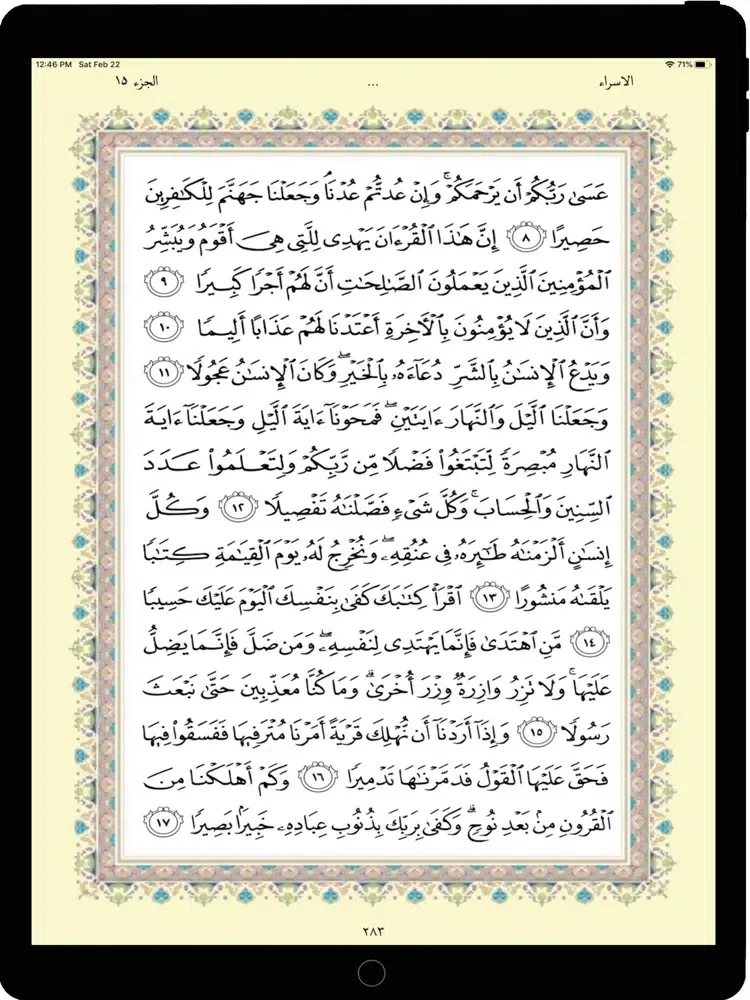 12:46 PM Sat Feb 22 71%
الاسراء ... الجزء ١٥
عَسَىٰ رَبُّكُمْ أَن يَرْحَمَكُمْ ۚ وَإِنْ عُدتُّمْ عُدْنَا ۘ وَجَعَلْنَا جَهَنَّمَ لِلْكَٰفِرِينَ
حَصِيرًا ٨ إِنَّ هَٰذَا الْقُرْءَانَ يَهْدِى لِلَّتِى هِىَ أَقْوَمُ وَيُبَشِّرُ
الْمُؤْمِنِينَ الَّذِينَ يَعْمَلُونَ الصَّٰلِحَٰتِ أَنَّ لَهُمْ أَجْرًا كَبِيرًا ٩
وَأَنَّ الَّذِينَ لَا يُؤْمِنُونَ بِالْأَخِرَةِ أَعْتَدْنَا لَهُمْ عَذَابًا أَلِيمًا ١٠
وَيَدْعُ الْإِنسَٰنُ بِالشَّرِّ دُعَآءَهُۥ بِالْخَيْرِ ۖ وَكَانَ الْإِنسَٰنُ عَجُولًا ١١
وَجَعَلْنَا الَّيْلَ وَالنَّهَارَ ءَايَتَيْنِ ۖ فَمَحَوْنَآ ءَايَةَ الَّيْلِ وَجَعَلْنَآ ءَايَةَ
النَّهَارِ مُبْصِرَةً لِّتَبْتَغُوا۟ فَضْلًا مِّن رَّبِّكُمْ وَلِتَعْلَمُوا۟ عَدَدَ
السِّنِينَ وَالْحِسَابَ ۚ وَكُلَّ شَىْءٍ فَصَّلْنَٰهُ تَفْصِيلًا ١٢ وَكُلَّ
إِنسَٰنٍ أَلْزَمْنَٰهُ طَٰٓئِرَهُۥ فِى عُنُقِهِۦ ۖ وَنُخْرِجُ لَهُۥ يَوْمَ الْقِيَٰمَةِ كِتَٰبًا
يَلْقَىٰهُ مَنشُورًا ١٣ اقْرَأْ كِتَٰبَكَ كَفَىٰ بِنَفْسِكَ الْيَوْمَ عَلَيْكَ حَسِيبًا
١٤ مَّنِ اهْتَدَىٰ فَإِنَّمَا يَهْتَدِى لِنَفْسِهِۦ ۖ وَمَن ضَلَّ فَإِنَّمَا يَضِلُّ
عَلَيْهَا ۚ وَلَا تَزِرُ وَازِرَةٌ وِزْرَ أُخْرَىٰ ۗ وَمَا كُنَّا مُعَذِّبِينَ حَتَّىٰ نَبْعَثَ
رَسُولًا ١٥ وَإِذَآ أَرَدْنَآ أَن نُّهْلِكَ قَرْيَةً أَمَرْنَا مُتْرَفِيهَا فَفَسَقُوا۟ فِيهَا
فَحَقَّ عَلَيْهَا الْقَوْلُ فَدَمَّرْنَٰهَا تَدْمِيرًا ١٦ وَكَمْ أَهْلَكْنَا مِنَ
الْقُرُونِ مِنۢ بَعْدِ نُوحٍ ۗ وَكَفَىٰ بِرَبِّكَ بِذُنُوبِ عِبَادِهِۦ خَبِيرًۢا بَصِيرًا ١٧
٢٨٣